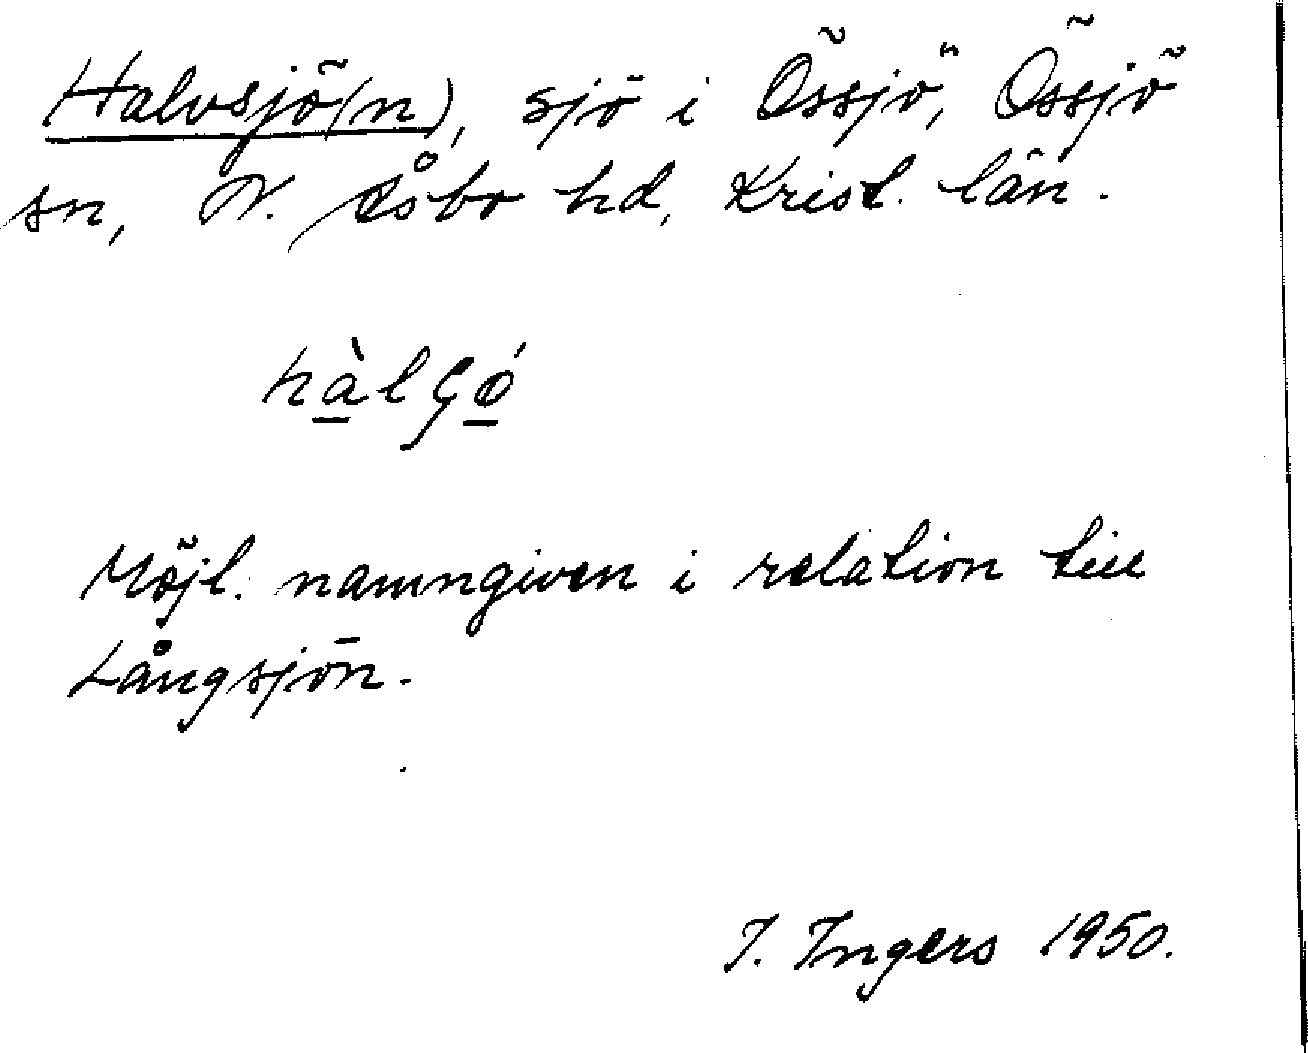 Halvsjö(n), sjö i Össjö, Össjö
sn, N. Åsbo hd, Krist. län.
hàlʃó
Möjl. namngiven i relation till
Långsjön.
I. Ingers 1950.